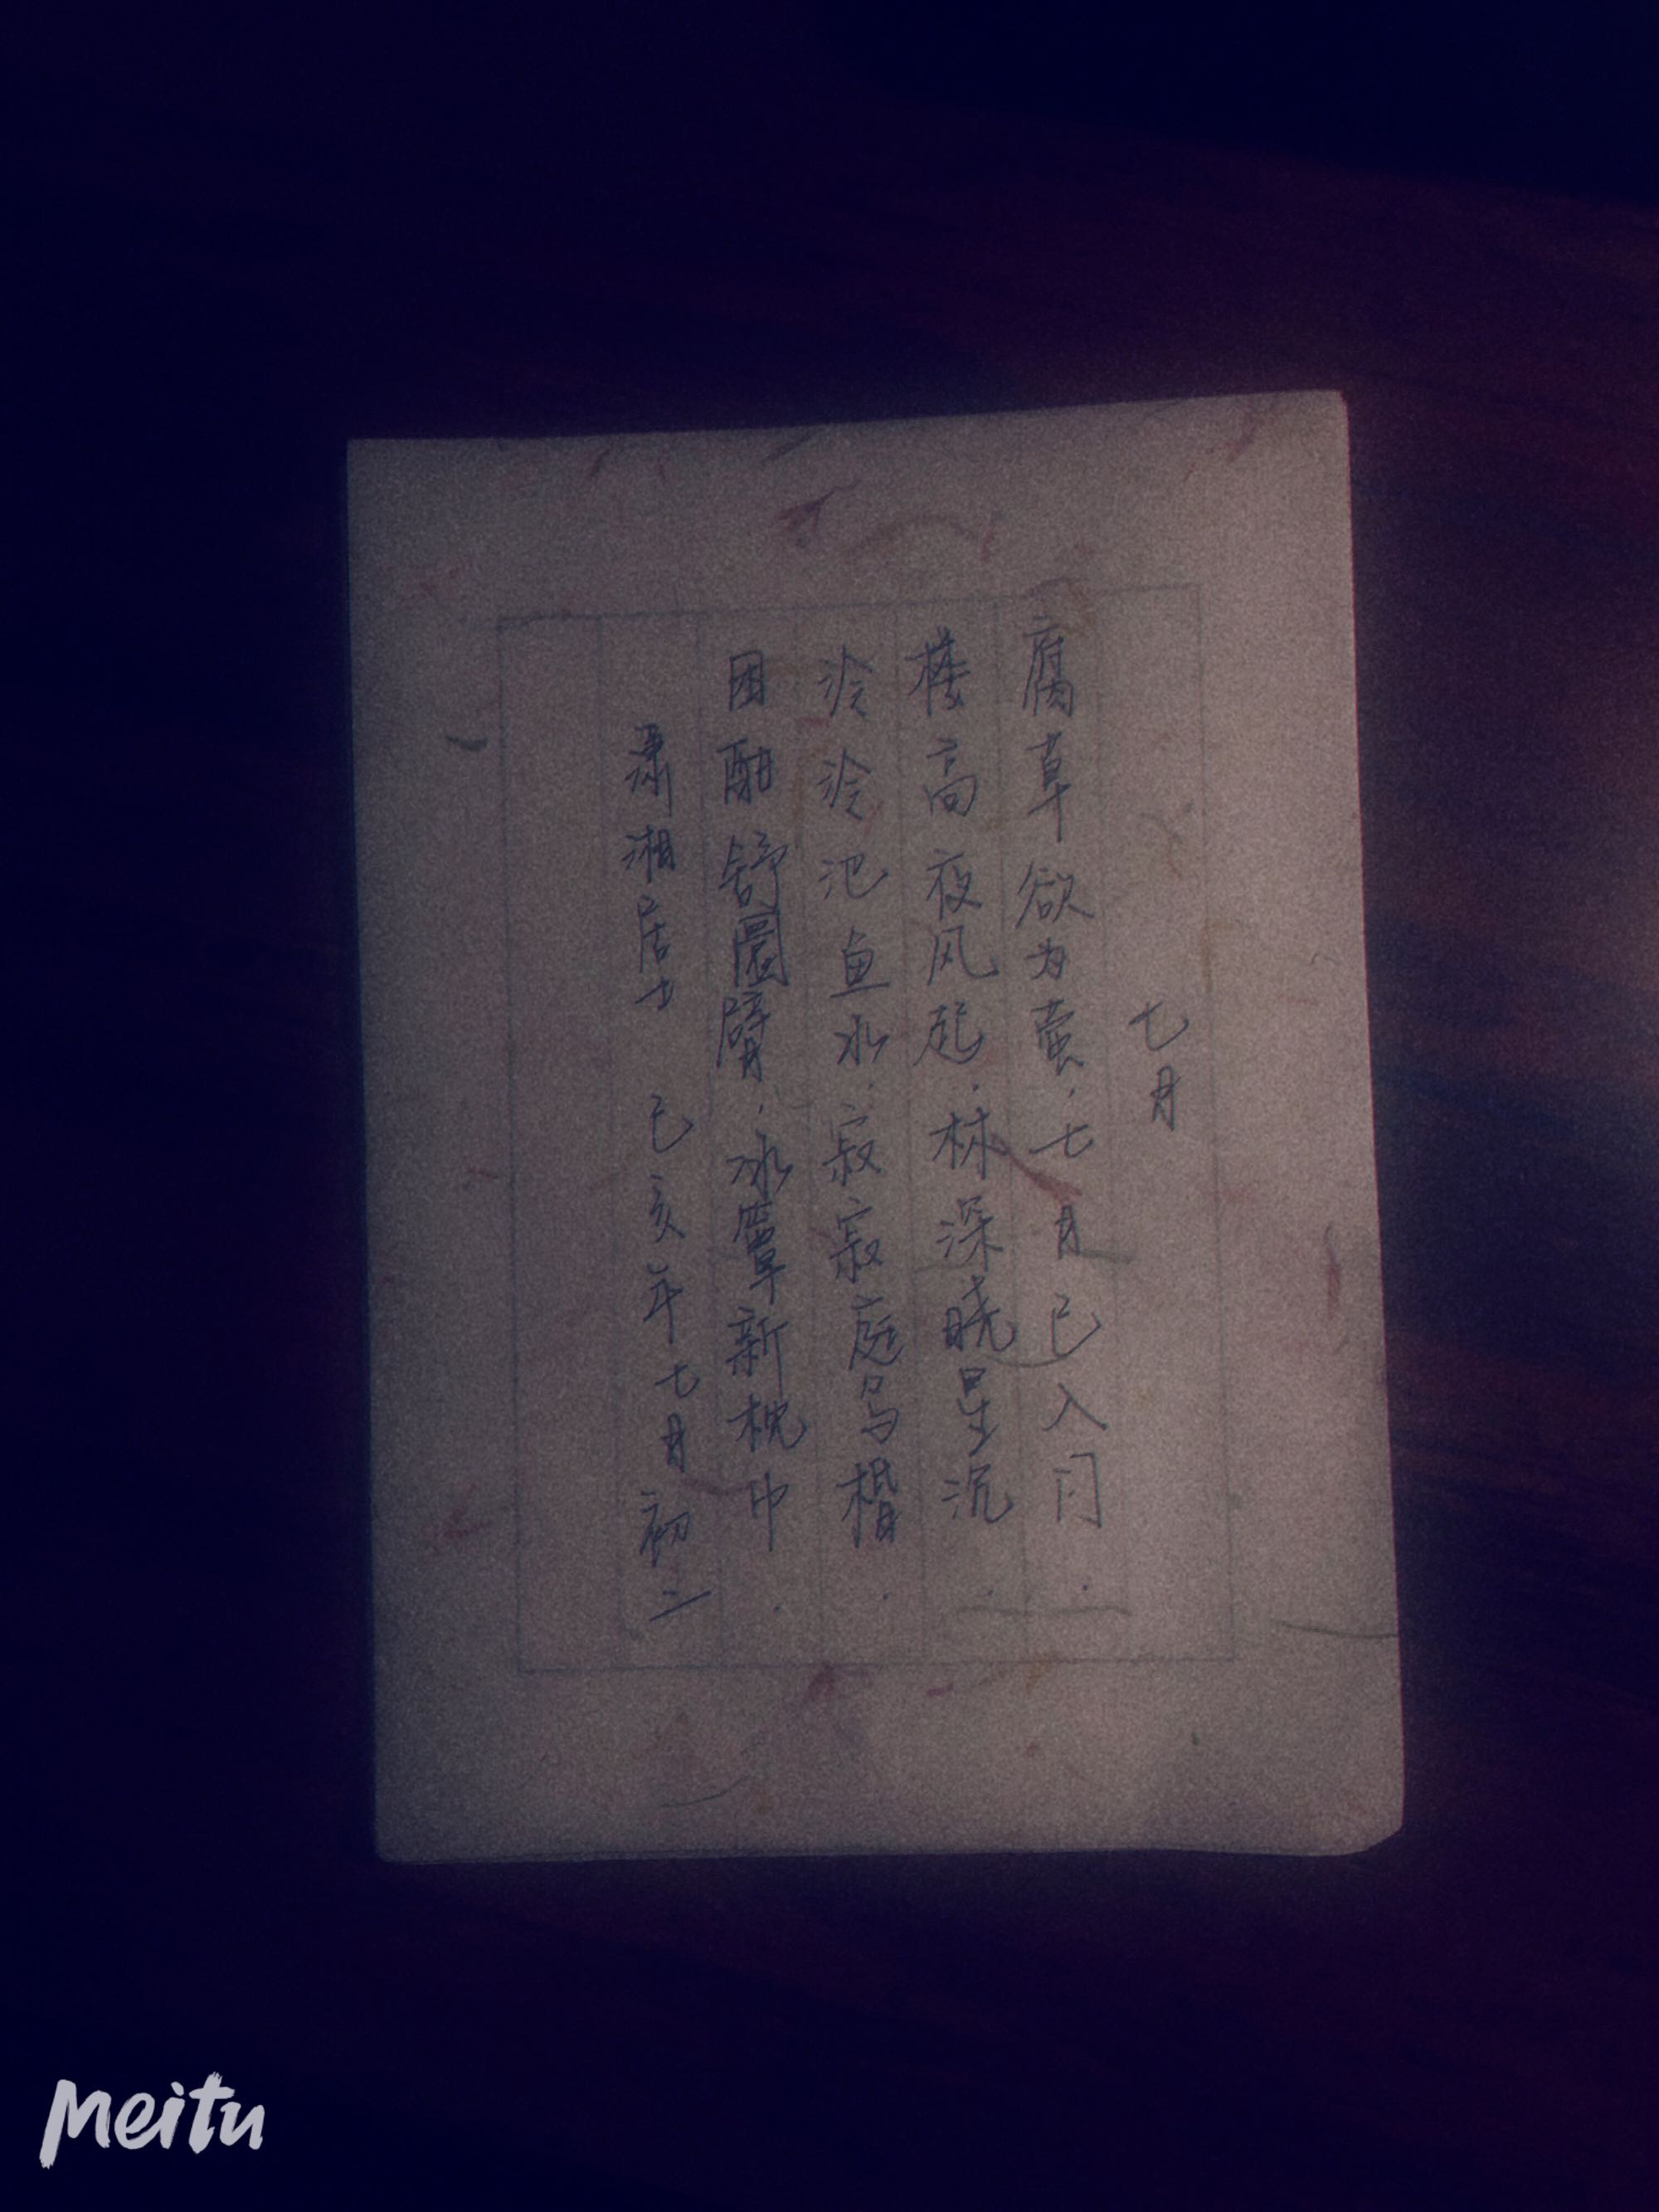 七月
腐草欲为萤,七月已入门.
楼高夜风起.林深晓星沉.
泠泠池鱼水.寂寂庭鸟棔.
困酣舒圆臂.冰簟新枕中.
潇湘居士 己亥年七月初二
Meitu